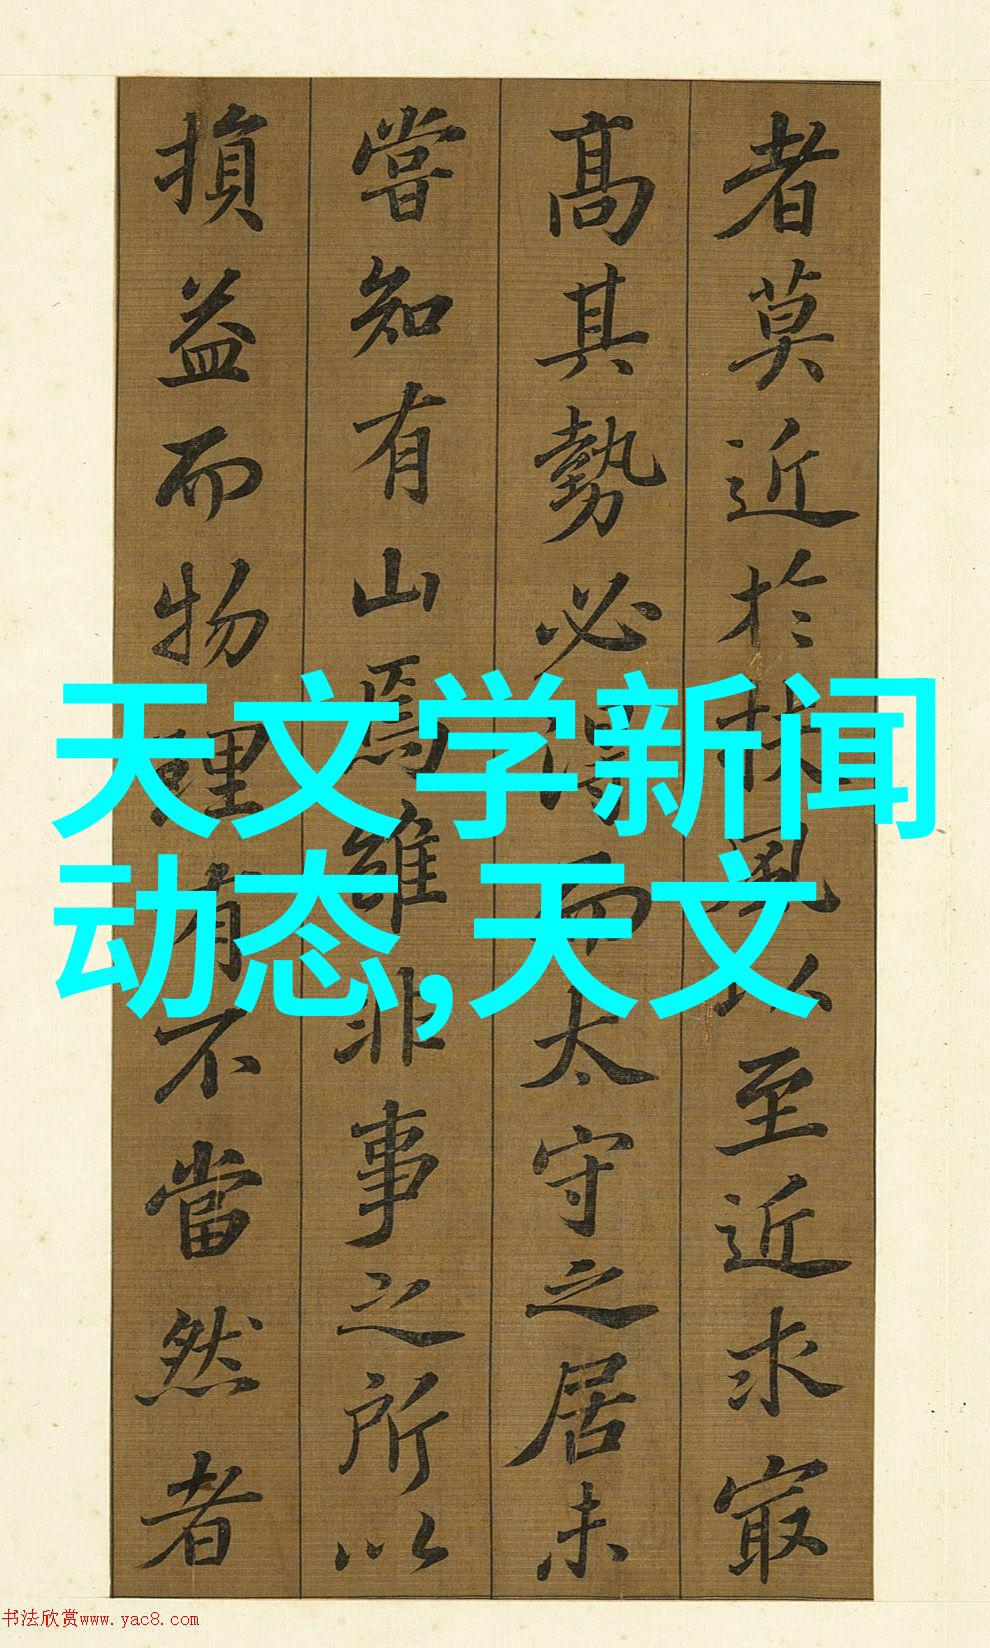 者莫近於扶風以至近求㝡
高其勢必得而太守之居未
嘗知有山焉維非事之所以
損益而物理有不當然者
天文学新闻
动态,天文
书法欣赏www.yac8.com